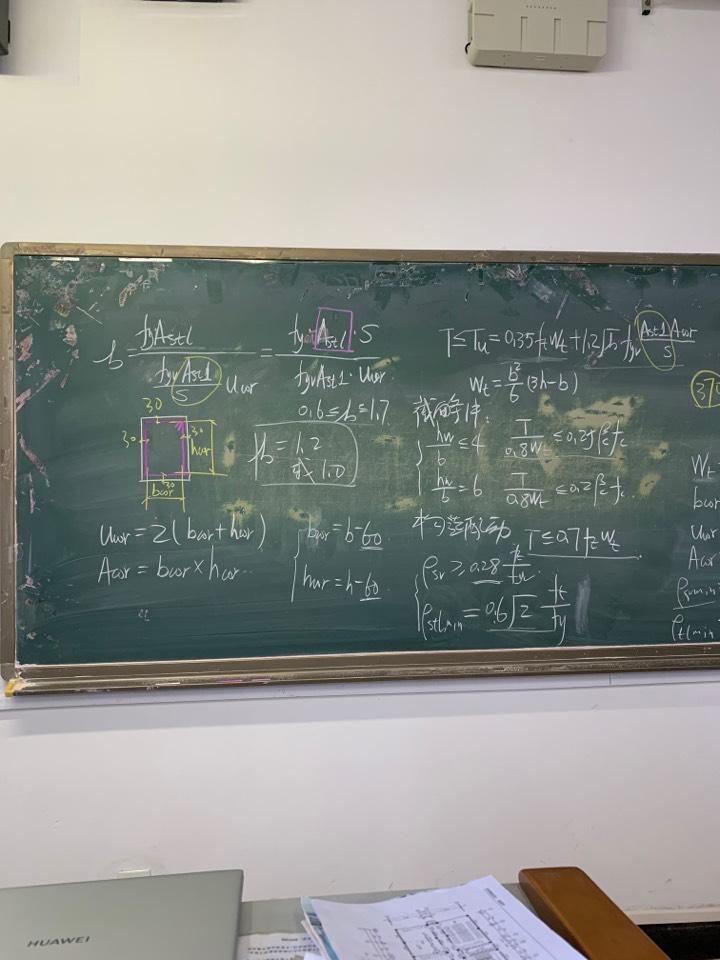 ζ = fyAstl / (fyv Ast1/S Ucor) = fyAstl·S / (fyvAst1·Ucor)
0.6≤ζ≤1.7
30
30
30
30
hcor
bcor
ζ=1.2
或1.0
Ucor=2(bcor+hcor)
Acor=bcor×hcor
bcor=b-60
hcor=h-60
T≤Tu=0.35ftWt+1.2√ζ fyv Ast1Acor/S
Wt=b²/6(3h-b)
截面条件:
hw/b≤4 T/0.8Wt≤0.25βcfc
hw/b=6 T/0.8Wt≤0.2βcfc
构造配筋 T≤0.7ftWt
ρsv≥0.28 ft/fyv
ρstl,min=0.6√2 ft/fy
370
Wt=
bcor
Ucor
Acor
ρsvmin
ρtlmin
HUAWEI